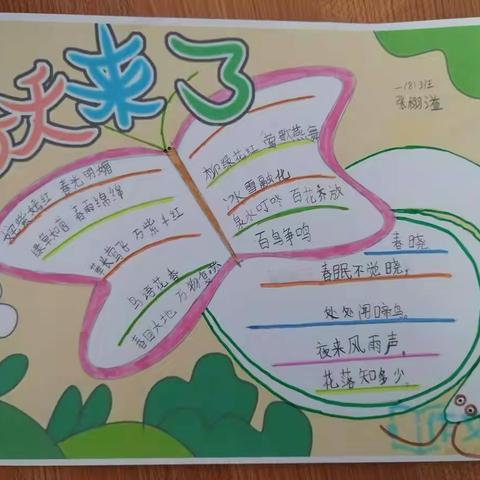 来了
一(8)班
姹紫嫣红 春光明媚
绿草如茵 春雨绵绵
草长莺飞 万紫千红
鸟语花香
春回大地 万物复苏
柳绿花红 莺歌燕舞
冰雪融化
泉水叮咚 百花齐放
百鸟争鸣
春晓
春眠不觉晓,
处处闻啼鸟。
夜来风雨声,
花落知多少。